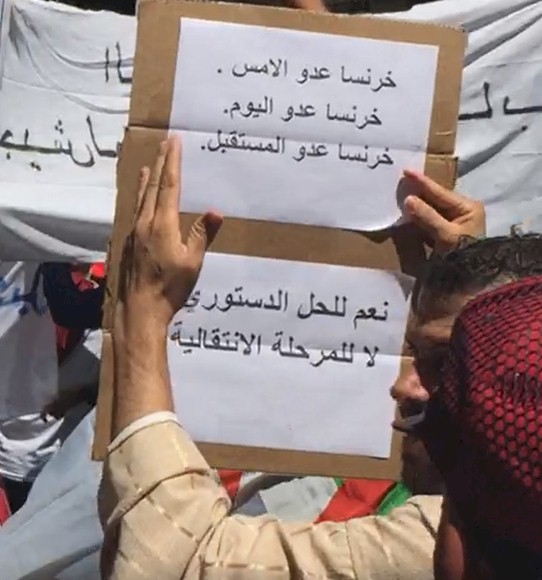 خرنسا عدو الامس .
خرنسا عدو اليوم.
خرنسا عدو المستقبل.
نعم للحل الدستوري
لا للمرحلة الانتقالية